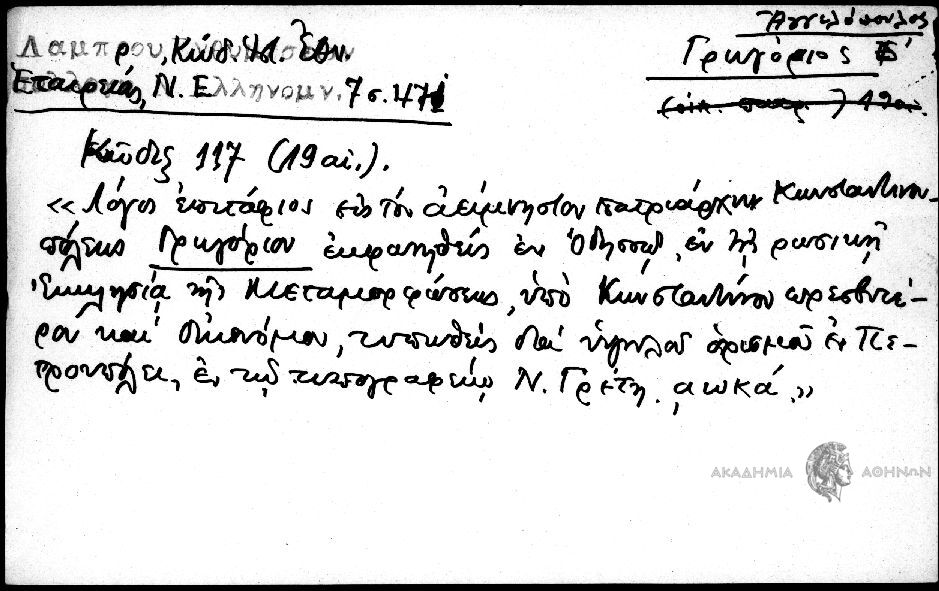 Λάμπρου, Κώδ. Ἱστ. Ἐθν.
Ἑταιρείας, Ν. Ἑλληνομν. 7 σ. 471
Ἀγγελόπουλος
Γρηγόριος Ε'
(οἰκ. πατρ. ) 19 αι.
Κῶδιξ 117 (19 αἰ.).
«Λόγος ἐπιτάφιος εἰς τὸν ἀείμνηστον πατριάρχην Κωνσταντινου-
πόλεως Γρηγόριον ἐκφωνηθείς ἐν Ὀδησσῷ, ἐν τῇ ρωσικῇ
Ἐκκλησίᾳ τῆς Μεταμορφώσεως, ὑπὸ Κωνσταντίνου πρεσβυτέ-
ρου καὶ Οἰκονόμου, τυπωθείς δι' ὑψηλοῦ ὁρισμοῦ ἐν Πε-
τρουπόλει, ἐν τῷ τυπογραφείῳ Ν. Γρέτζη ͵αωκά.»
ΑΚΑΔΗΜΙΑ ΑΘΗΝΩΝ